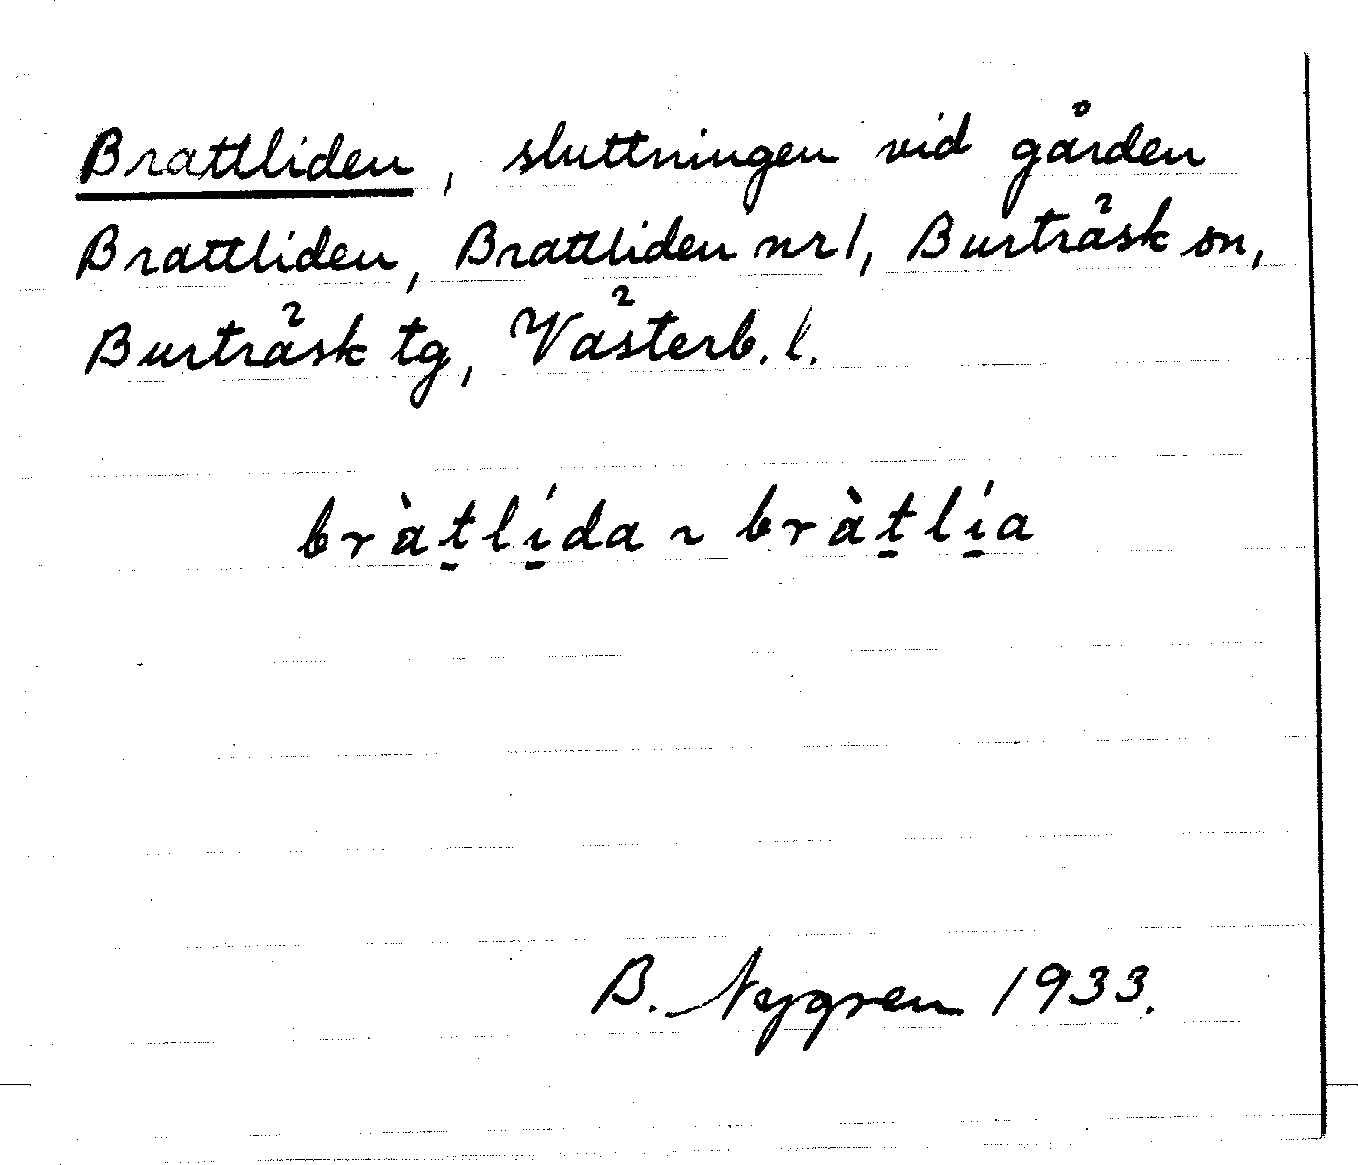 Brattliden, sluttningen vid gården
Brattliden, Brattliden nr 1, Burträsk sn,
Burträsk tg, Västerb. l.
bràt̠lí̠da ~ bràt̠lí̠a
B. Nygren 1933.